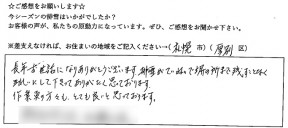 ☆ご感想をお願いします☆
今シーズンの排雪はいかがでしたか？
お客様の声が、私たちの原動力になっています。ぜひ、ご感想をお聞かせ下さい。
※差支えなければ、お住まいの地域をご記入ください→（札幌 市）（厚別 区）
長年お世話になりありがとうございます。排雪がていねいで
きれいにして下さってありがたく思っております。
作業員の方々も、とても良いと思っております。